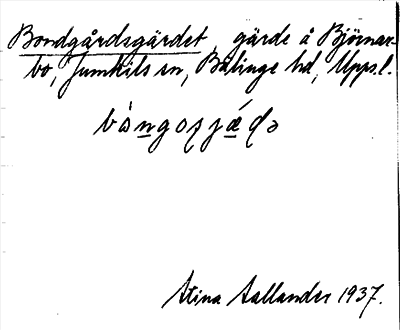 Bondgårdsgärdet, gärde å Björnar-
bo, Jumkils sn, Bälinge hd, Upps.l.
bòngosjǽdə
Stina Sallander 1937.